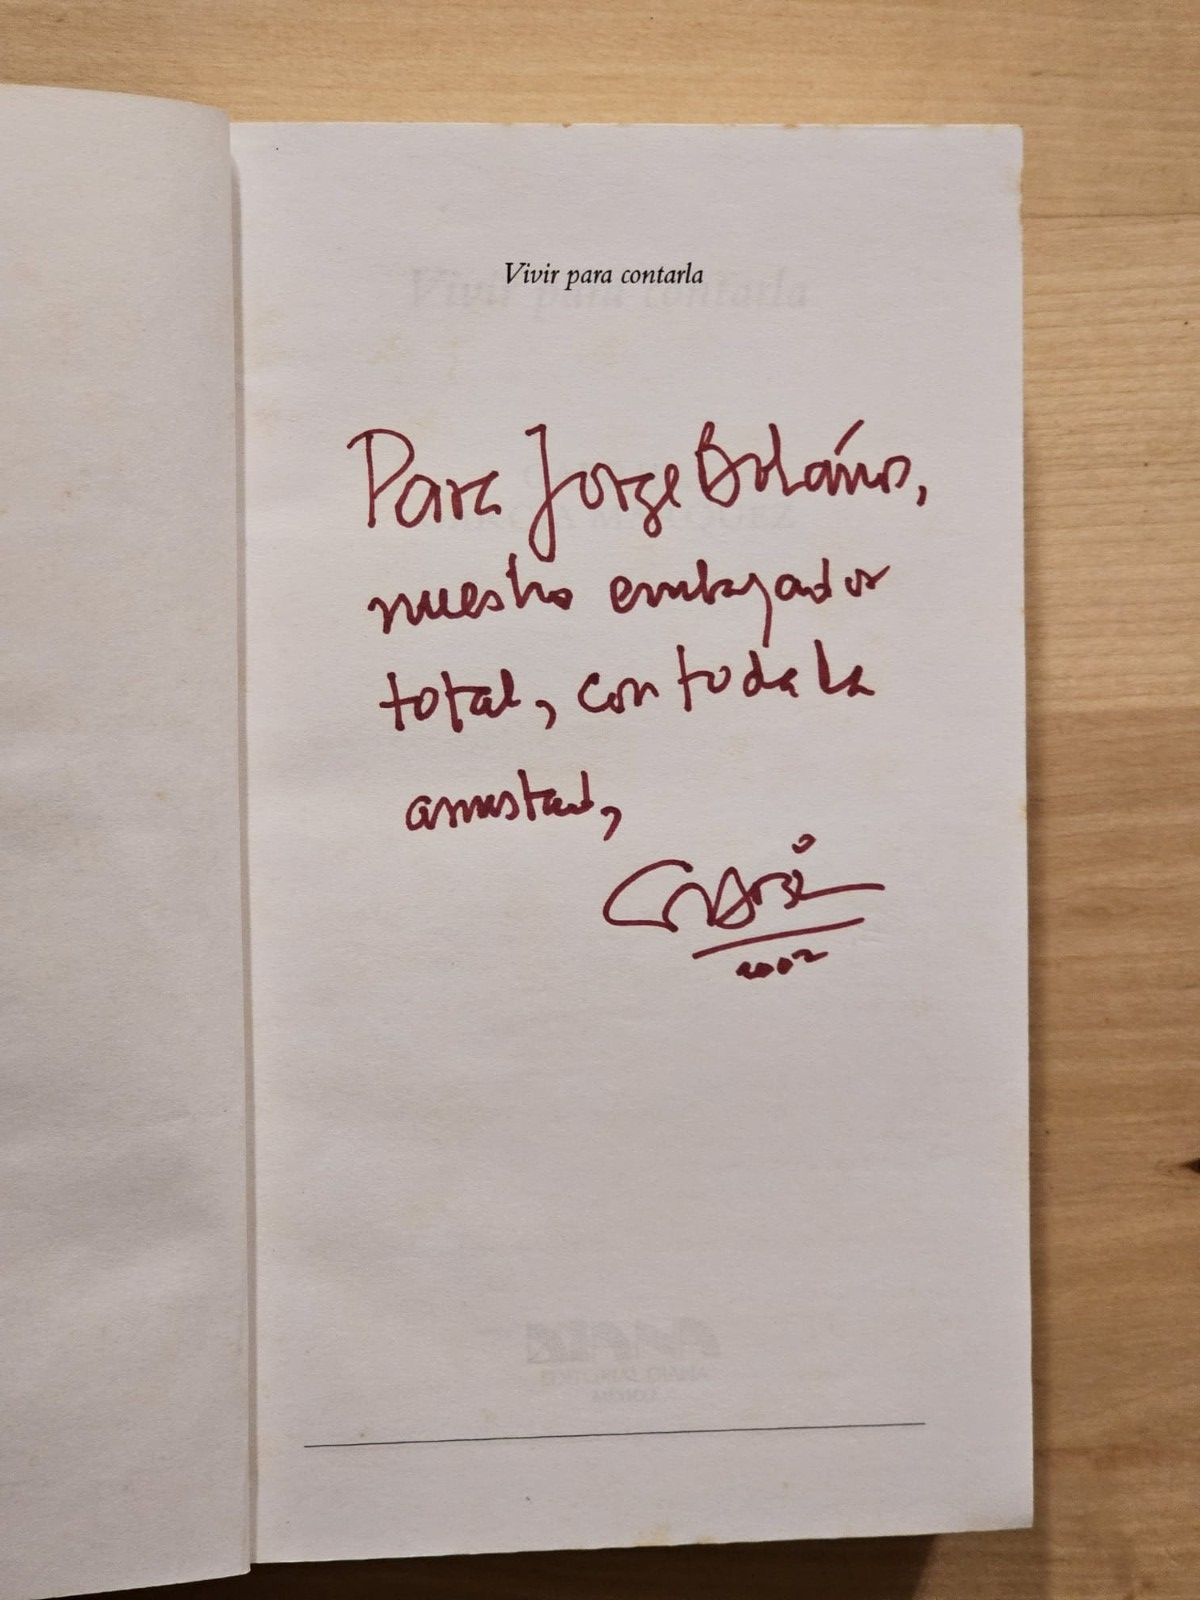 Vivir para contarla
Para Jorge Bolaños,
nuestro embajador
total, con toda la
amistad,
2002
EDITORIAL DIANA
MEXICO